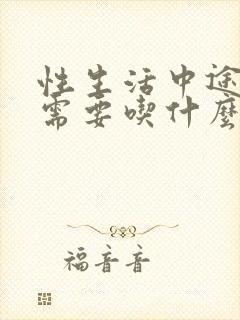 性生活中途
需要喫什麼
福音音